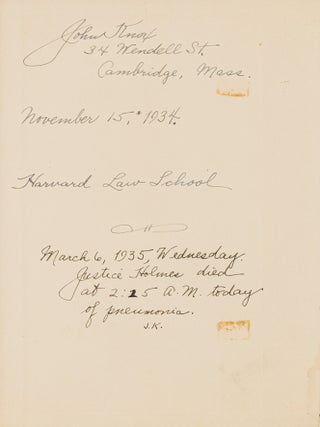 John Knox
34 Wendell St.
Cambridge, Mass.
November 15, 1934.
Harvard Law School
March 6, 1935, Wednesday.
Justice Holmes died
at 2:15 A.M. today
of pneumonia.
J.K.